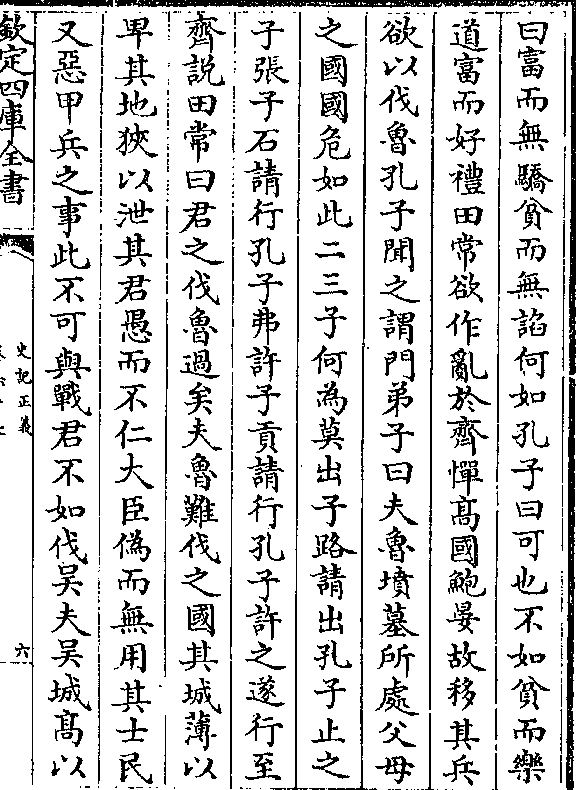 曰富而無驕貧而無諂何如孔子曰可也不如貧而樂
道富而好禮田常欲作亂於齊憚髙國鮑晏故移其兵
欲以伐魯孔子聞之謂門弟子曰夫魯墳墓所處父母
之國國危如此二三子何為莫出子路請出孔子止之
子張子石請行孔子弗許子貢請行孔子許之遂行至
齊説田常曰君之伐魯過矣夫魯難伐之國其城薄以
卑其地狹以泄其君愚而不仁大臣偽而無用其士民
又惡甲兵之事此不可與戰君不如伐吴夫吴城髙以
欽定四庫全書
史記正義
六